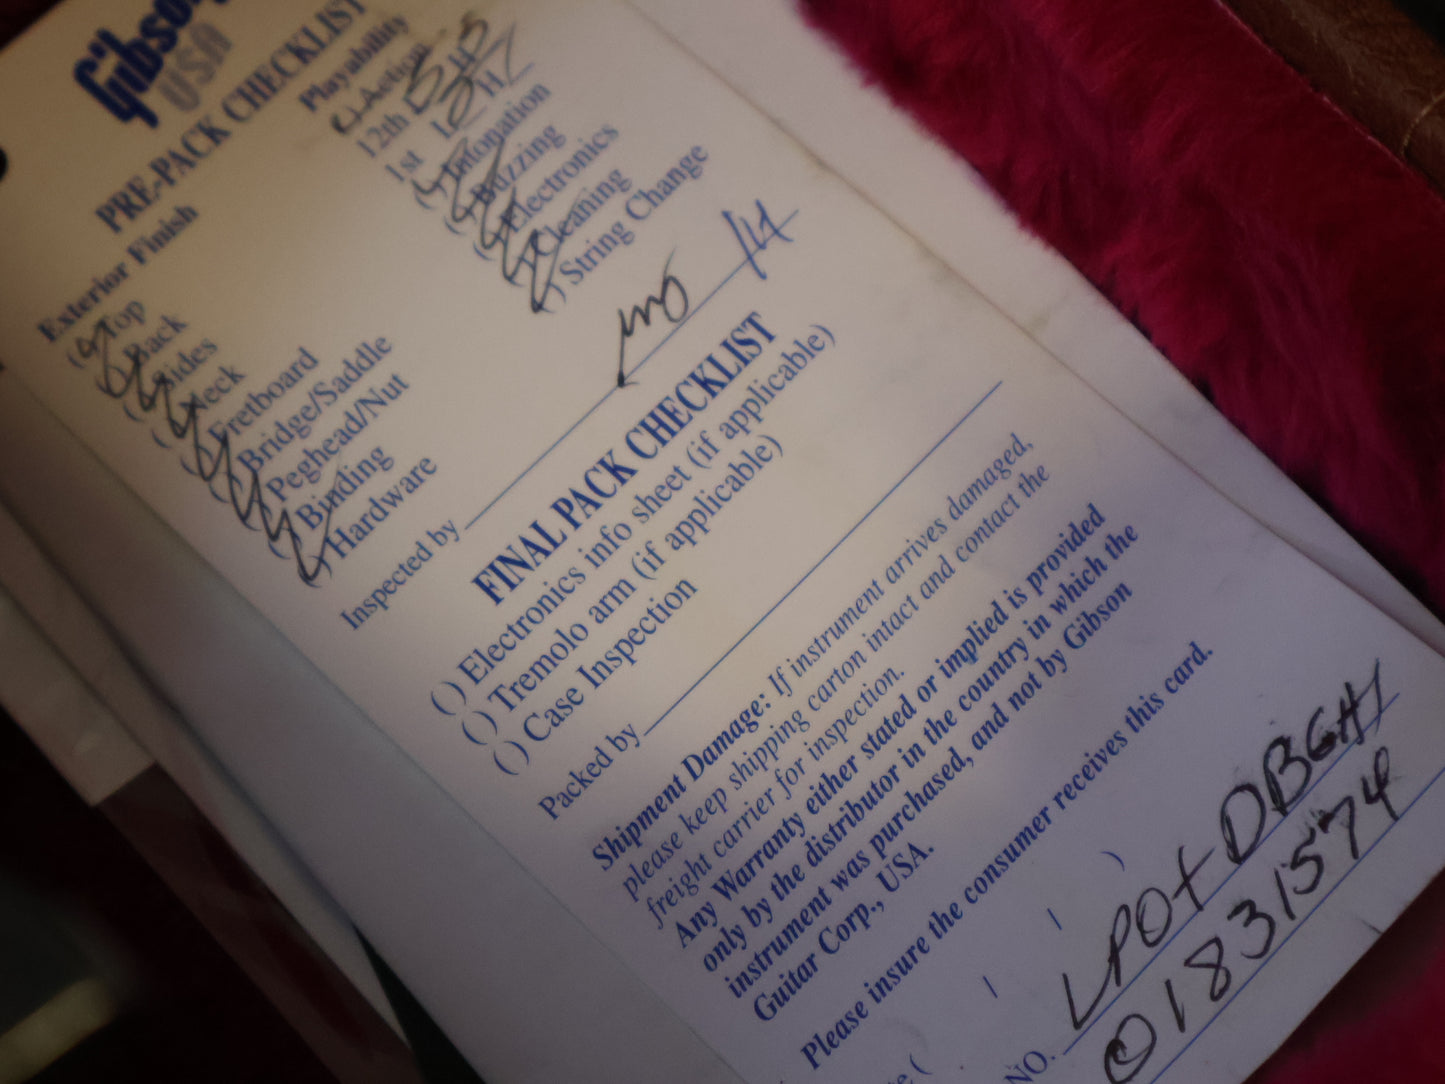 Gibson
USA
PRE-PACK CHECKLIST
Exterior Finish
Top
Back
Sides
Neck
Fretboard
Bridge/Saddle
Peghead/Nut
Binding
( ) Hardware
Playability
Action
12th
1st
Intonation
Buzzing
Electronics
Cleaning
( ) String Change
Inspected by
FINAL PACK CHECKLIST
( ) Electronics info sheet (if applicable)
( ) Tremolo arm (if applicable)
( ) Case Inspection
Packed by
Shipment Damage: If instrument arrives damaged,
please keep shipping carton intact and contact the
freight carrier for inspection.
Any Warranty either stated or implied is provided
only by the distributor in the country in which the
instrument was purchased, and not by Gibson
Guitar Corp., USA.
Please insure the consumer receives this card.
LPO+DBGH1
NO. 01831574